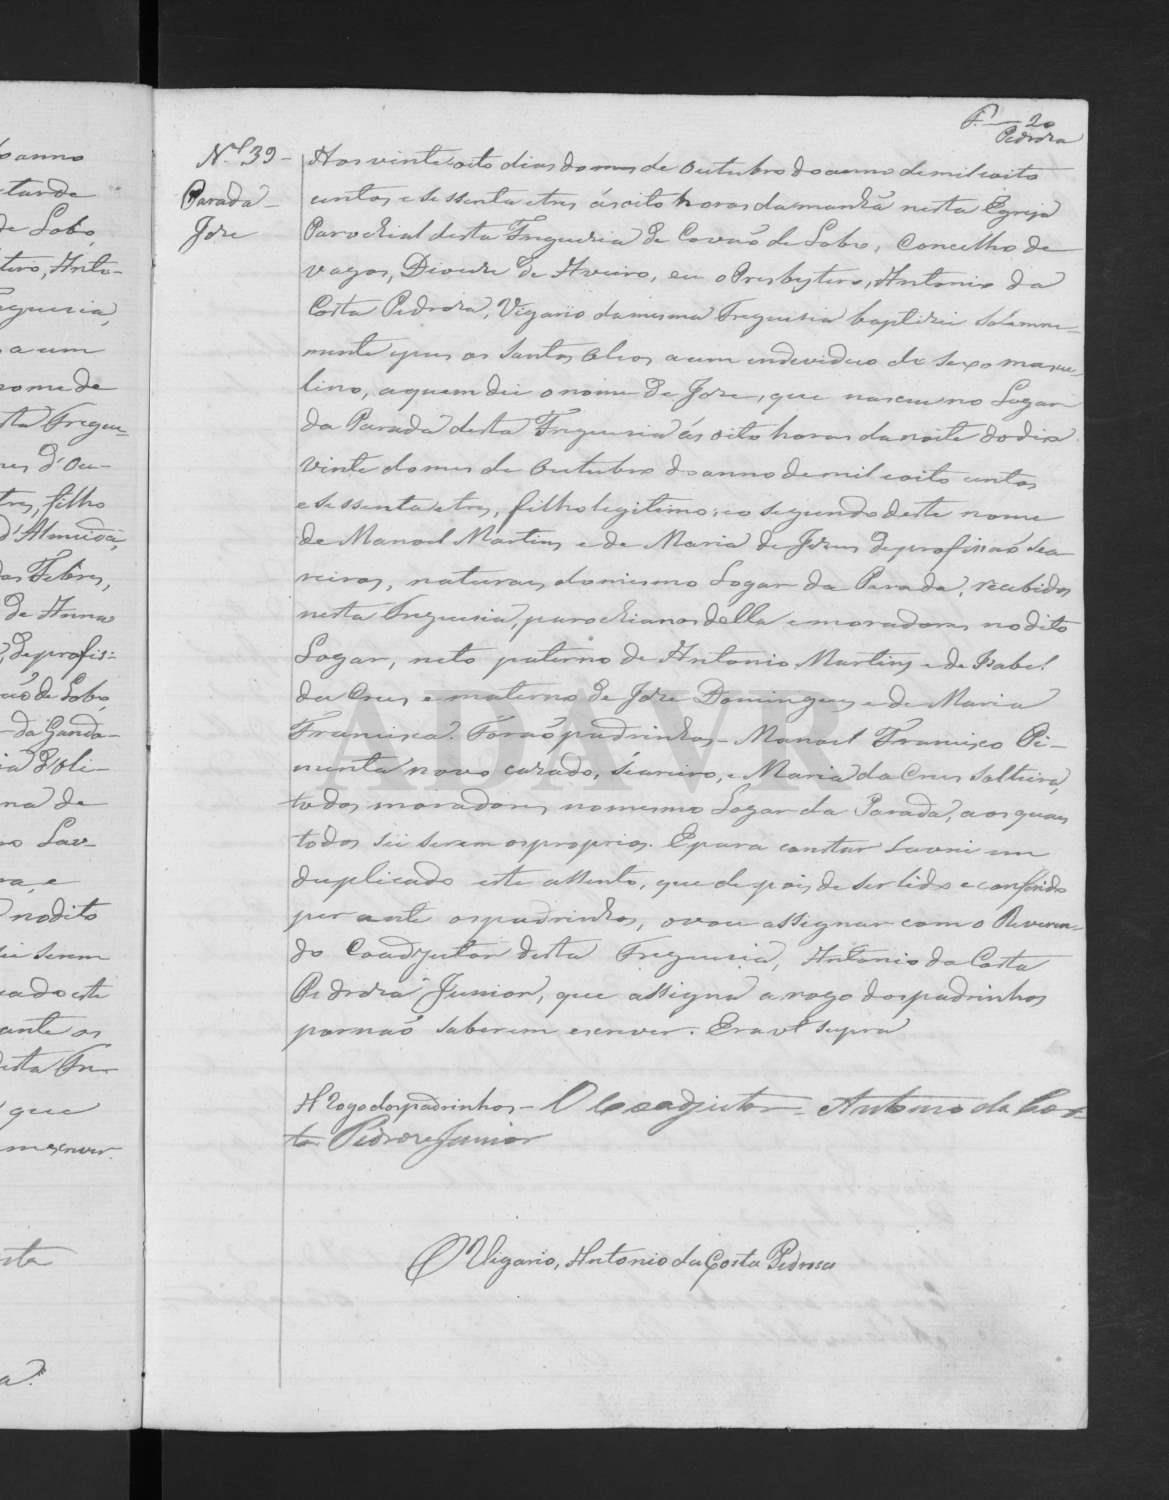 F. 20
Pedroza
N.º 39 -
Parada -
Joze
Aos vinte oito dias do mes de Outubro do anno de mil oito
centos e sessenta e tres ás oito horas da manhã nesta Egreja
Parochial desta Freguezia de Covaõ de Lobo, Concelho de
Vagos, Diocese de Aveiro, eu o Presbytero, Antonio da
Costa Pedroza, Vigario da mesma Freguezia baptizei solemne-
mente e pus os Santos Oleos a um endeviduo do sexo mascu-
lino, a quem dei o nome de Joze, que nasceu no Logar
da Parada desta Freguezia ás oito horas da noite do dia
vinte do mes de Outubro do anno de mil e oito centos
e sessenta e tres, filho legitimo, e o segundo deste nome
de Manoel Martins e de Maria de Jezus de profissaõ Sea
reiros, naturaes do mesmo Logar da Parada, recebidos
nesta Freguezia, parochianos della e moradores no dito
Logar, neto paterno de Antonio Martins e de Izabel
da Crus e materno de Joze Domingues e de Maria
Francisca. Foraõ padrinhos - Manoel Francisco Pi-
menta novo cazado, Seareiro, e Maria da Crus solteira,
todos moradores no mesmo Logar da Parada, aos quaes
todos sei serem os proprios. E para constar lavrei em
duplicado este assento, que depois de ser lido e conferido
perante os padrinhos, o vou assignar com o Reveren-
do Coadjutor desta Freguezia, Antonio da Costa
Pedroza Junior, que assigna a rogo dos padrinhos
por naõ saberem escrever. Era ut supra
A Rogo dos padrinhos - O Coadjutor - Antonio da Cos-
ta Pedroza Junior
O Vigario, Antonio da Costa Pedroza
ADAVR